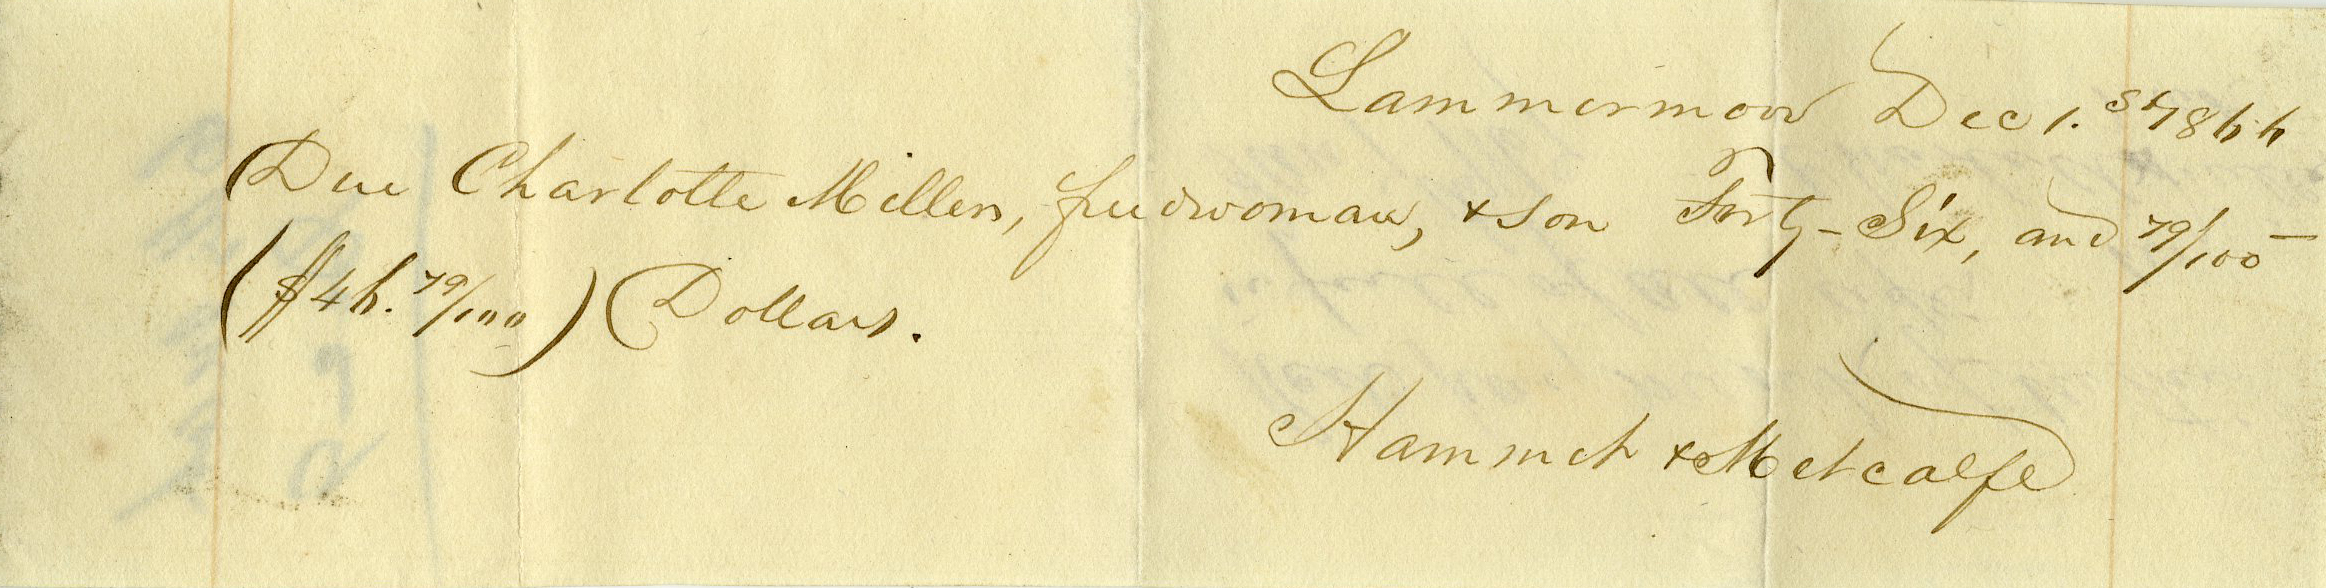 Lammermoor Dec 1.st 1866
Due Charlotte Miller, freedwoman, & son Forty-Six, and 79/100
($46.79/100) Dollars.
Hammet & Metcalfe